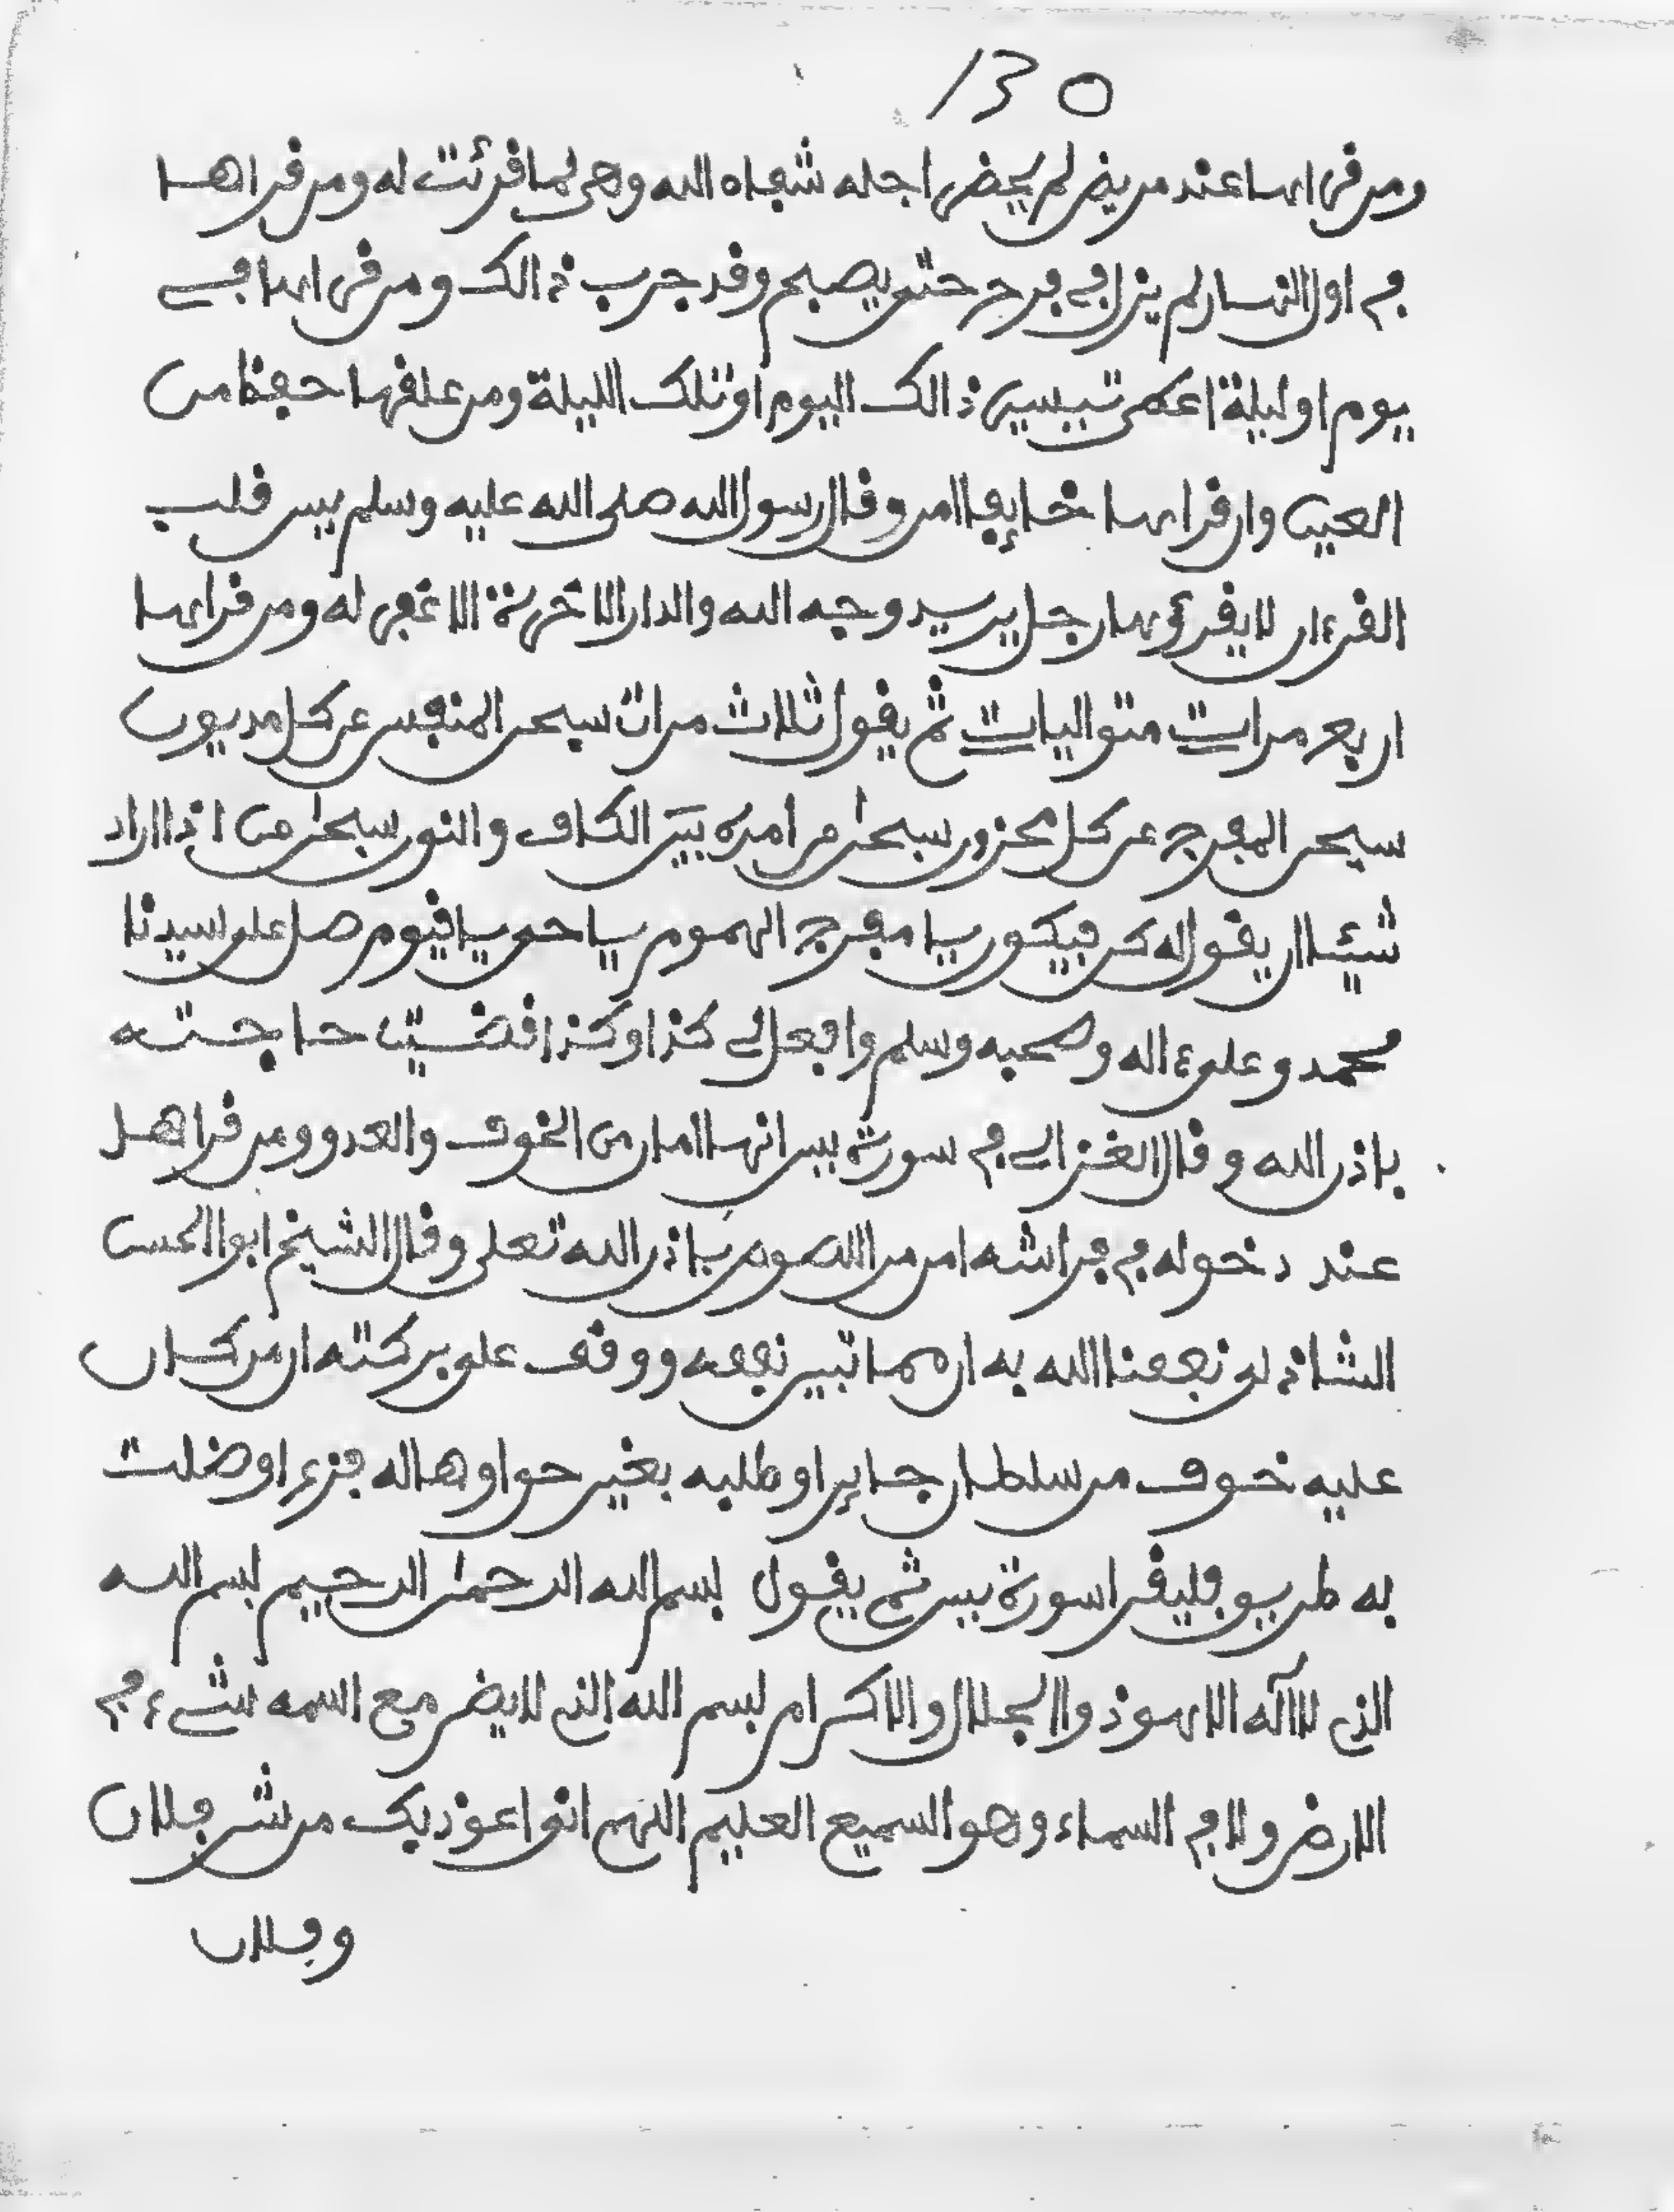 130
ومن قراها عند مريض لم يحضر اجله شفاه الله وهي لما قرئت له ومن قراها
في اول النهار لم يزل في فرح حتى يصبح وقد جرب ذالك ومن قراها في
يوم او ليلة اعطى تيسير ذالك اليوم او تلك الليلة ومن علقها حفظ من
العين وان قراها خايفا امن وقال رسول الله صلى الله عليه وسلم يس قلب
القرءان لا يقرؤها رجل يريد وجه الله والدار الاخرة الا غفر له ومن قراها
اربع مرات متواليات ثم يقول ثلاث مرات سبحن المنفس عن كل مديون
سبحن المفرج عن كل محزون سبحن من امره بين الكاف والنور سبحن من اذا اراد
شيئا ان يقول له كن فيكون يا مفرج الهموم يا حي يا قيوم صل على سيدنا
محمد وعلى ءاله وصحبه وسلم وافعل لي كذا وكذا قضيت حاجته
باذن الله وقال الغزالي في سورة يس انها امان من الخوف والعدو ومن قراها
عند دخوله في فراشه امن من اللصوص باذن الله تعلى وقال الشيخ ابوا الحسن
الشاذلي نفعنا الله به ان مما تبين نفعه ووقف على بركته ان من كان
عليه خوف من سلطان جاير او طلبه بغير حق او هاله فزع او ضلت
به طريق فليقرا سورة يس ثم يقول بسم الله الرحمن الرحيم بسم الله
الذي لا اله الا هو ذوا الجلال والاكرام بسم الله الذي لا يضر مع اسمه شيء في
الارض ولا في السماء وهو السميع العليم اللهم اني اعوذ بك من شر فلان
وفلان